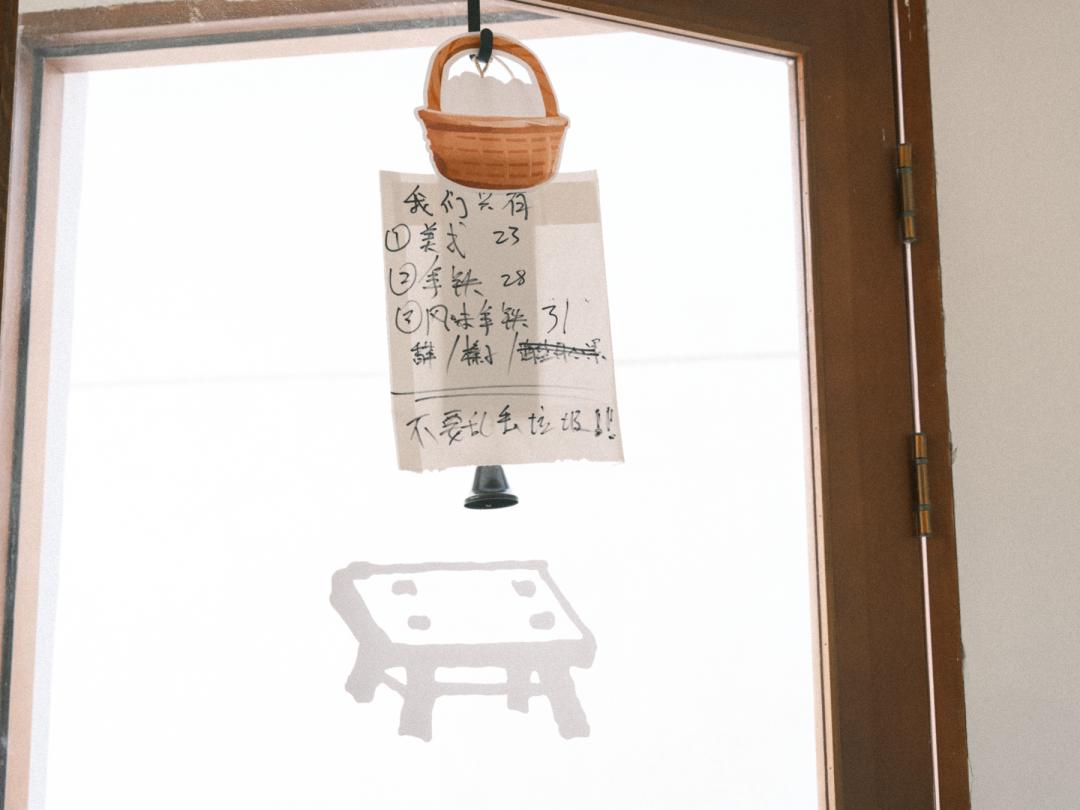 我们只有
①美式 23
②手铁 28
③风味手铁 31
不要乱丢垃圾!!!